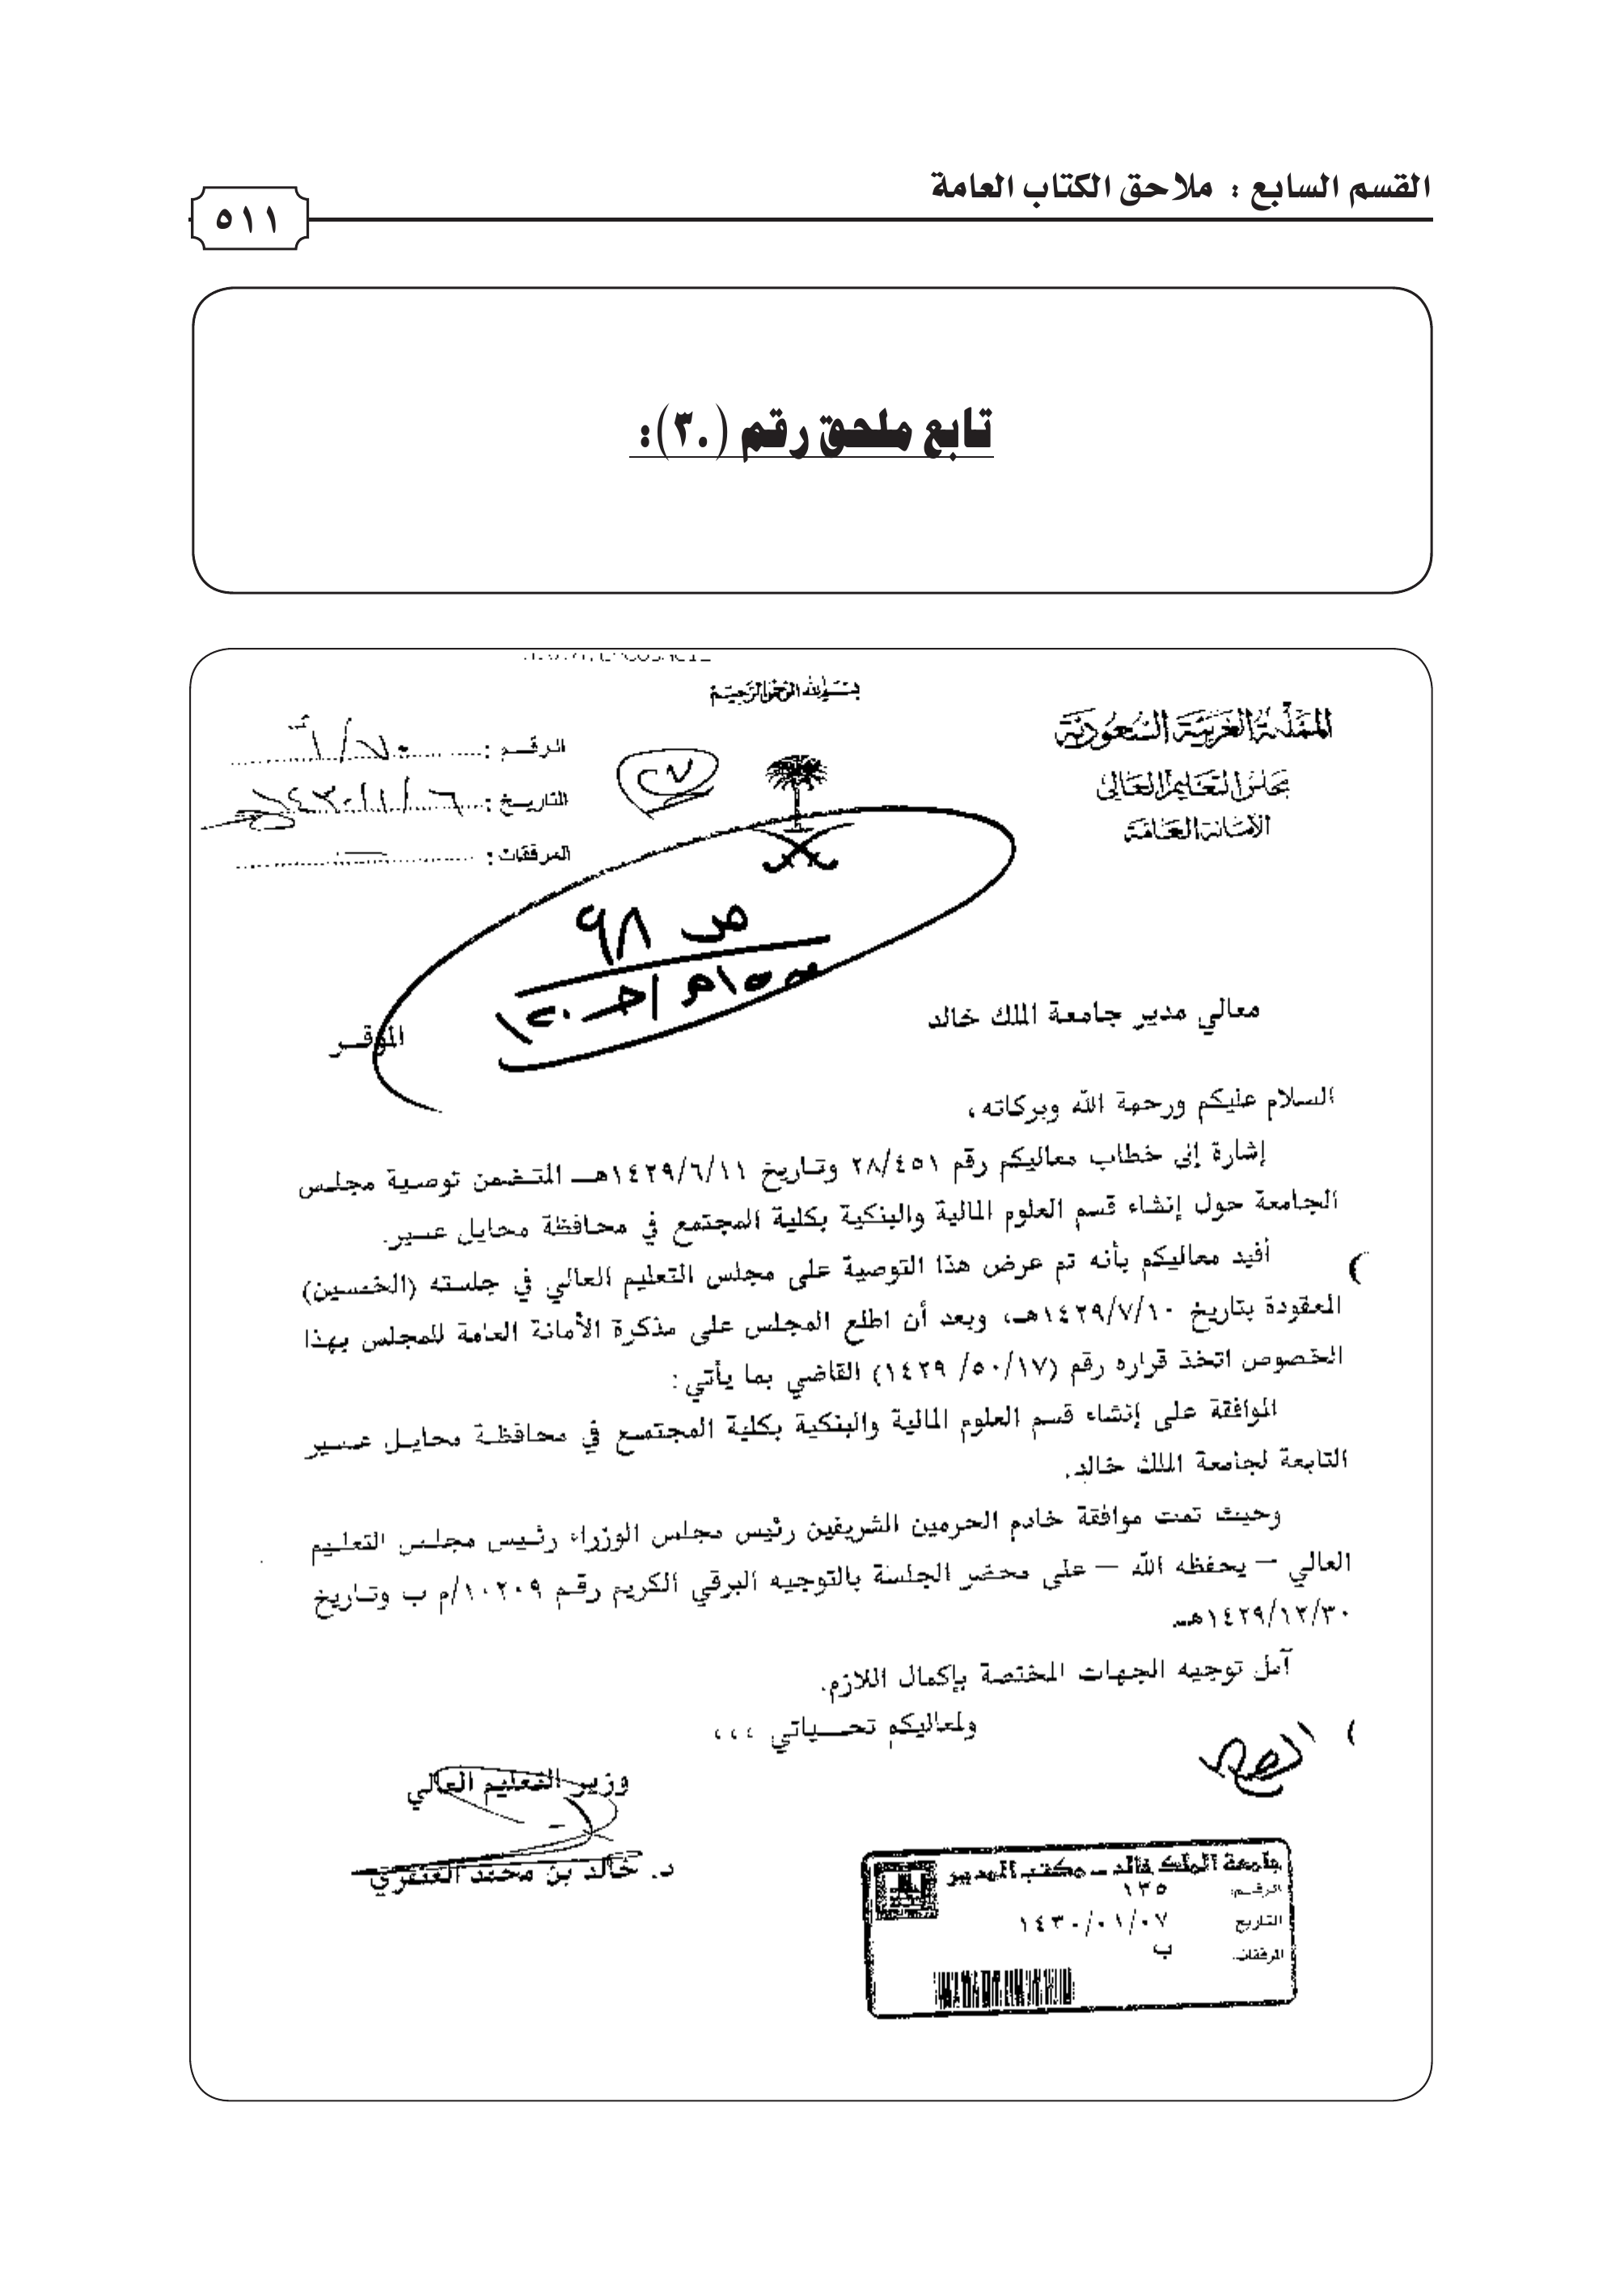 القسم السابع : ملاحق الكتاب العامة
٥١١
تابع ملحق رقم (٣٠):
بسم الله الرحمن الرحيم
المملكة العربية السعودية
مجلس التعليم العالي
الأمانة العامة
الرقم :
التاريخ :
المرفقات :
ص ٩٨
معالي مدير جامعة الملك خالد
الموقر
السلام عليكم ورحمة الله وبركاته ،
إشارة إلى خطاب معاليكم رقم ٢٨/٤٥١ وتاريخ ١٤٢٩/٦/١١هـ المتضمن توصية مجلس
الجامعة حول إنشاء قسم العلوم المالية والبنكية بكلية المجتمع في محافظة محايل عسير.
أفيد معاليكم بأنه تم عرض هذا التوصية على مجلس التعليم العالي في جلسته (الخمسين)
المعقودة بتاريخ ١٤٢٩/٧/١٠هـ، وبعد أن اطلع المجلس على مذكرة الأمانة العامة للمجلس بهذا
الخصوص اتخذ قراره رقم (١٤٢٩ /٥٠/١٧) القاضي بما يأتي :
الموافقة على إنشاء قسم العلوم المالية والبنكية بكلية المجتمع في محافظة محايل عسير
التابعة لجامعة الملك خالد.
وحيث تمت موافقة خادم الحرمين الشريفين رئيس مجلس الوزراء رئيس مجلس التعليم
العالي – يحفظه الله – على محضر الجلسة بالتوجيه البرقي الكريم رقم ١٠٢٠٩/م ب وتاريخ
١٤٢٩/١٢/٣٠هـ
آمل توجيه الجهات المختصة بإكمال اللازم.
ولمعاليكم تحياتي ،،،
وزير التعليم العالي
د. خالد بن محمد العنقري
جامعة الملك خالد - مكتب المدير
الرقم: ١٣٥
التاريخ ١٤٣٠/٠١/٠٧
المرفقات: ب